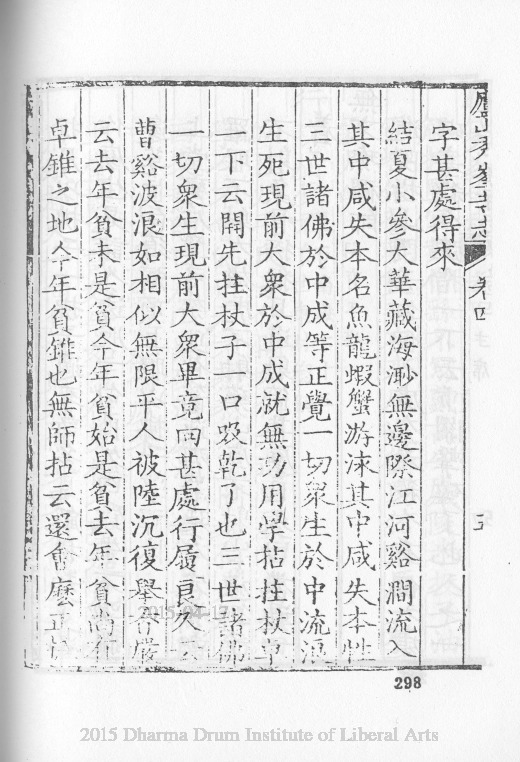 廬山秀峯寺志 卷四 五
字甚處得來
結夏小參大華藏海渺無邊際江河谿澗流入
其中咸失本名魚龍蝦蟹游泳其中咸失本性
三世諸佛於中成等正覺一切眾生於中流浪
生死現前大眾於中成就無功用學拈拄杖卓
一下云開先拄杖子一口吸乾了也三世諸佛
一切眾生現前大眾畢竟向甚處行履良久云
曹谿波浪如相似無限平人被陸沉復舉香嚴
云去年貧未是貧今年貧始是貧去年貧尚有
卓錐之地今年貧錐也無師拈云還會麼正
298
2015 Dharma Drum Institute of Liberal Arts